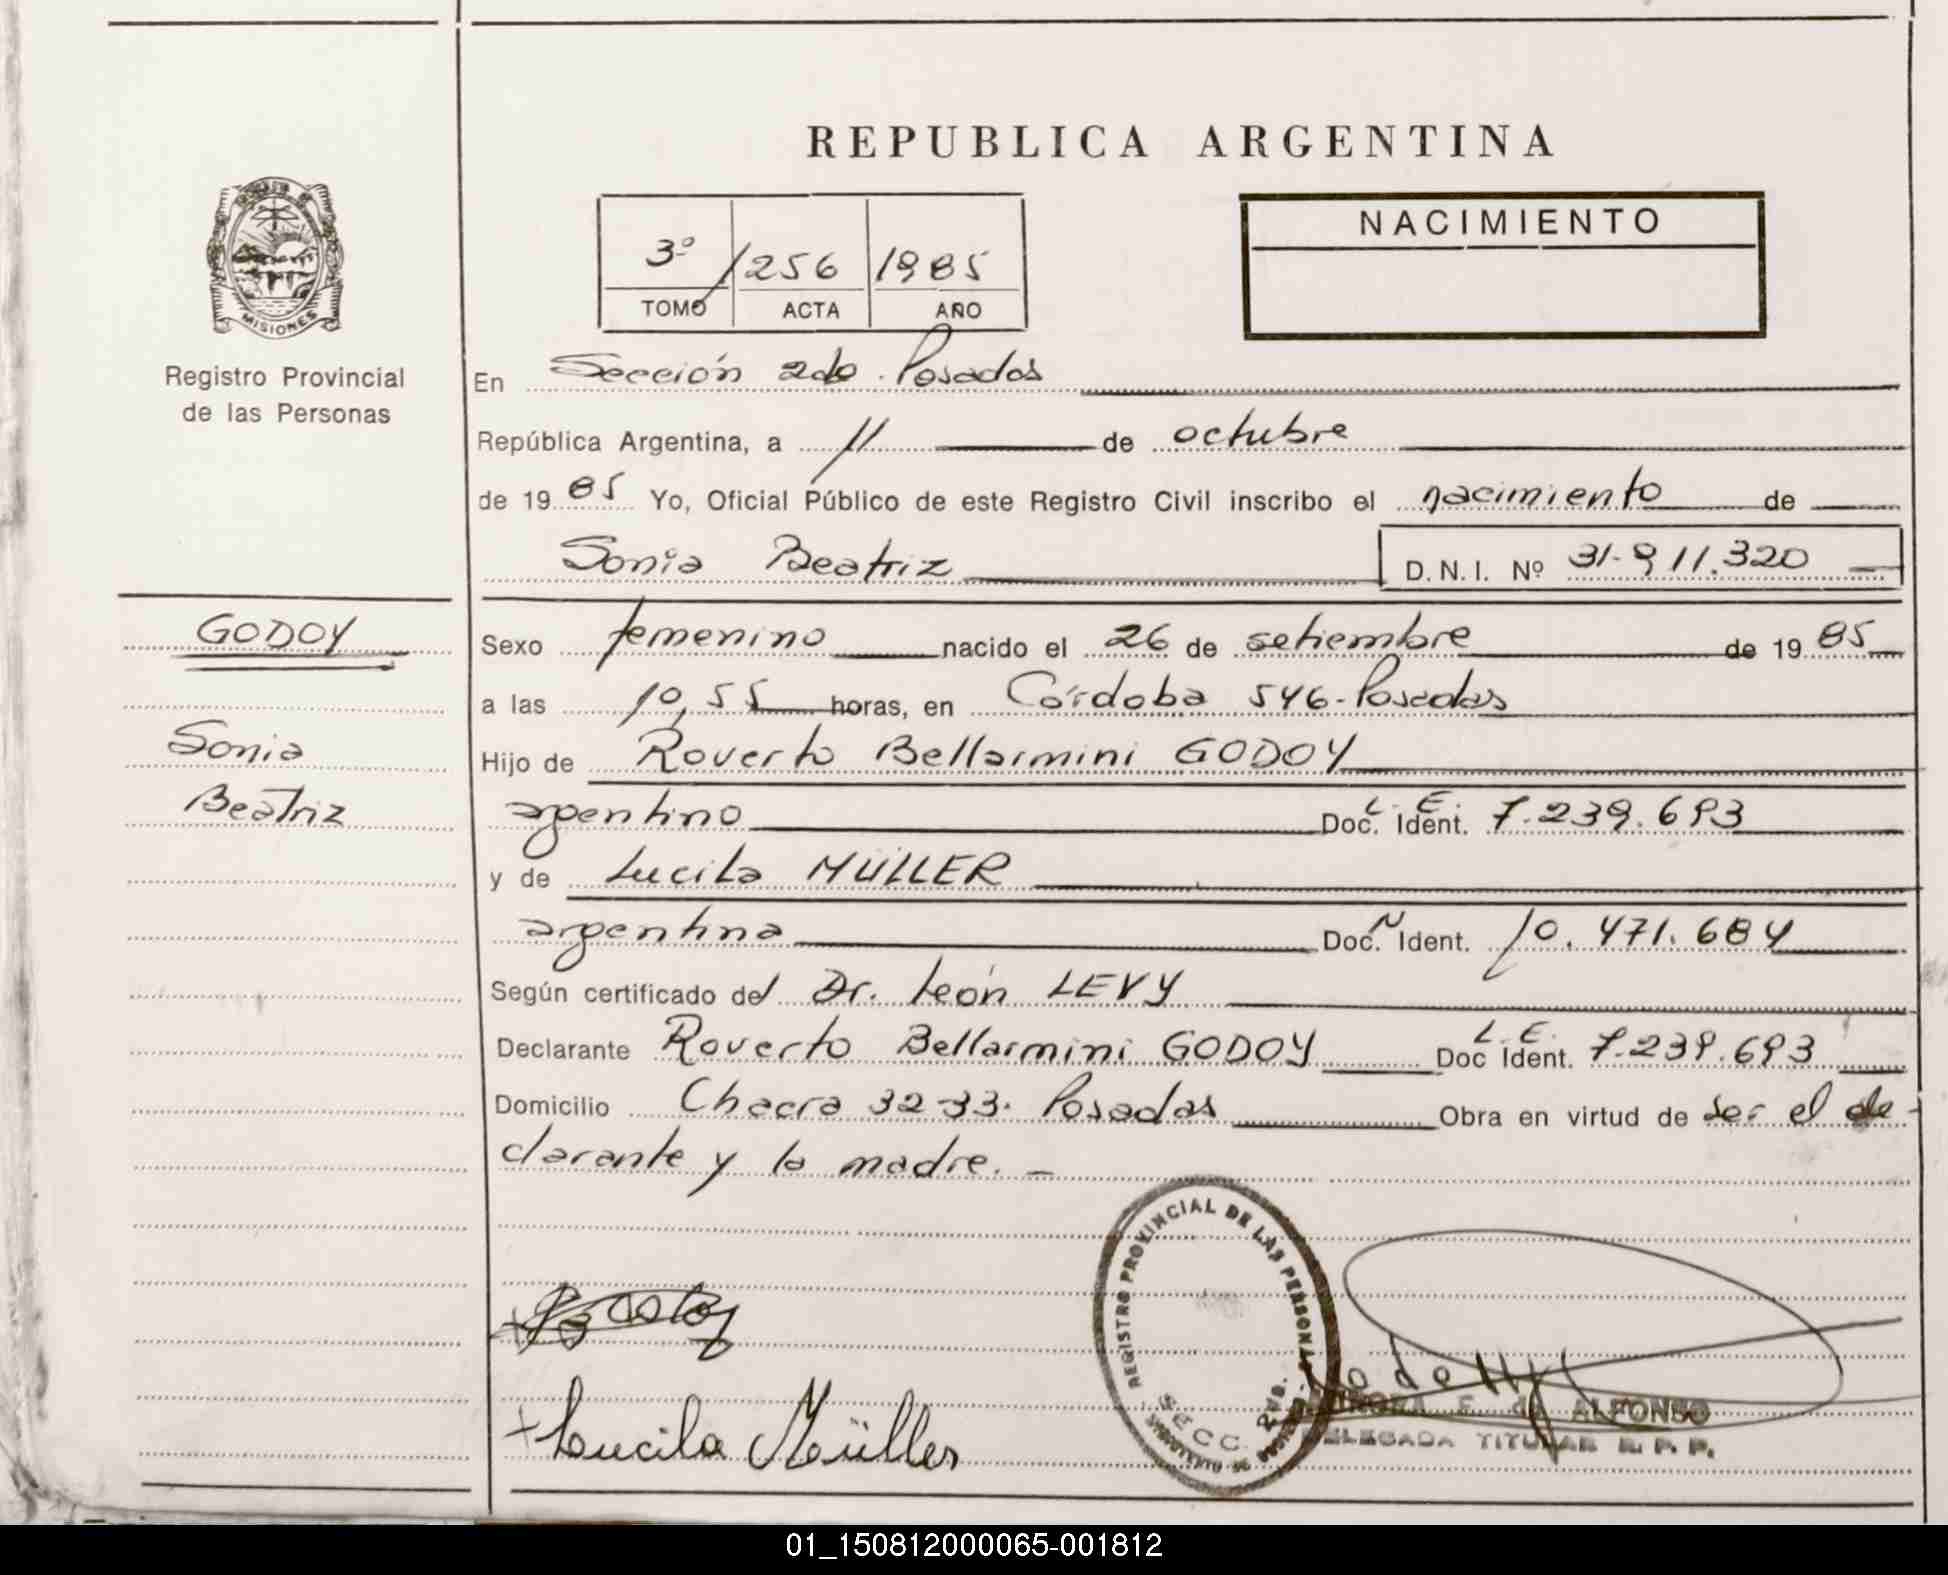 REPUBLICA ARGENTINA
NACIMIENTO
3º / 256 1985
TOMO ACTA AÑO
MISIONES
Registro Provincial
de las Personas
En Sección 2da. Posadas
República Argentina, a 11 de octubre
de 1985 Yo, Oficial Público de este Registro Civil inscribo el nacimiento de
Sonia Beatriz D.N.I. Nº 31.911.320
GODOY
Sonia
Beatriz
Sexo femenino nacido el 26 de setiembre de 1985
a las 10,55 horas, en Córdoba 546-Posadas
Hijo de Roverto Bellarmini GODOY
argentino Doc. Ident. L.E. 7.239.693
y de Lucila MÜLLER
argentina Doc. Ident. N 10.471.684
Según certificado del Dr. León LEVY
Declarante Roverto Bellarmini GODOY Doc Ident. L.E. 7.239.693
Domicilio Chacra 32-33. Posadas Obra en virtud de ser el de-
clarante y la madre. -
REGISTRO PROVINCIAL DE LAS PERSONAS
SECC. 2da.
+ Lucila Müller
E. de ALFONSO
DELEGADA TITULAR R. P. P.
01_150812000065-001812